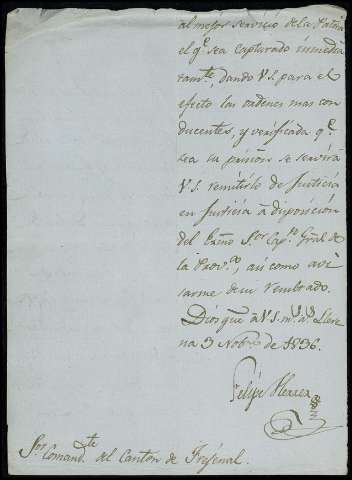 al mejor servicio de la Patria
el q.e sea capturado inmedia
tam.te, dando V.S. para el
efecto las ordenes mas con
ducentes, y verificada q.e
sea su prision se servirá
V.S. remitirlo de Justicia
en Justicia á disposicion
del Exmo S.or Cap.n Gral de
la Prov.a, asi como avi
sarme de su
Dios gue á V.S. m.s a.s Llere
na 3 Nobre de 1836.
Felipe Herrer
S.or Comand.te del Canton de Frejenal.